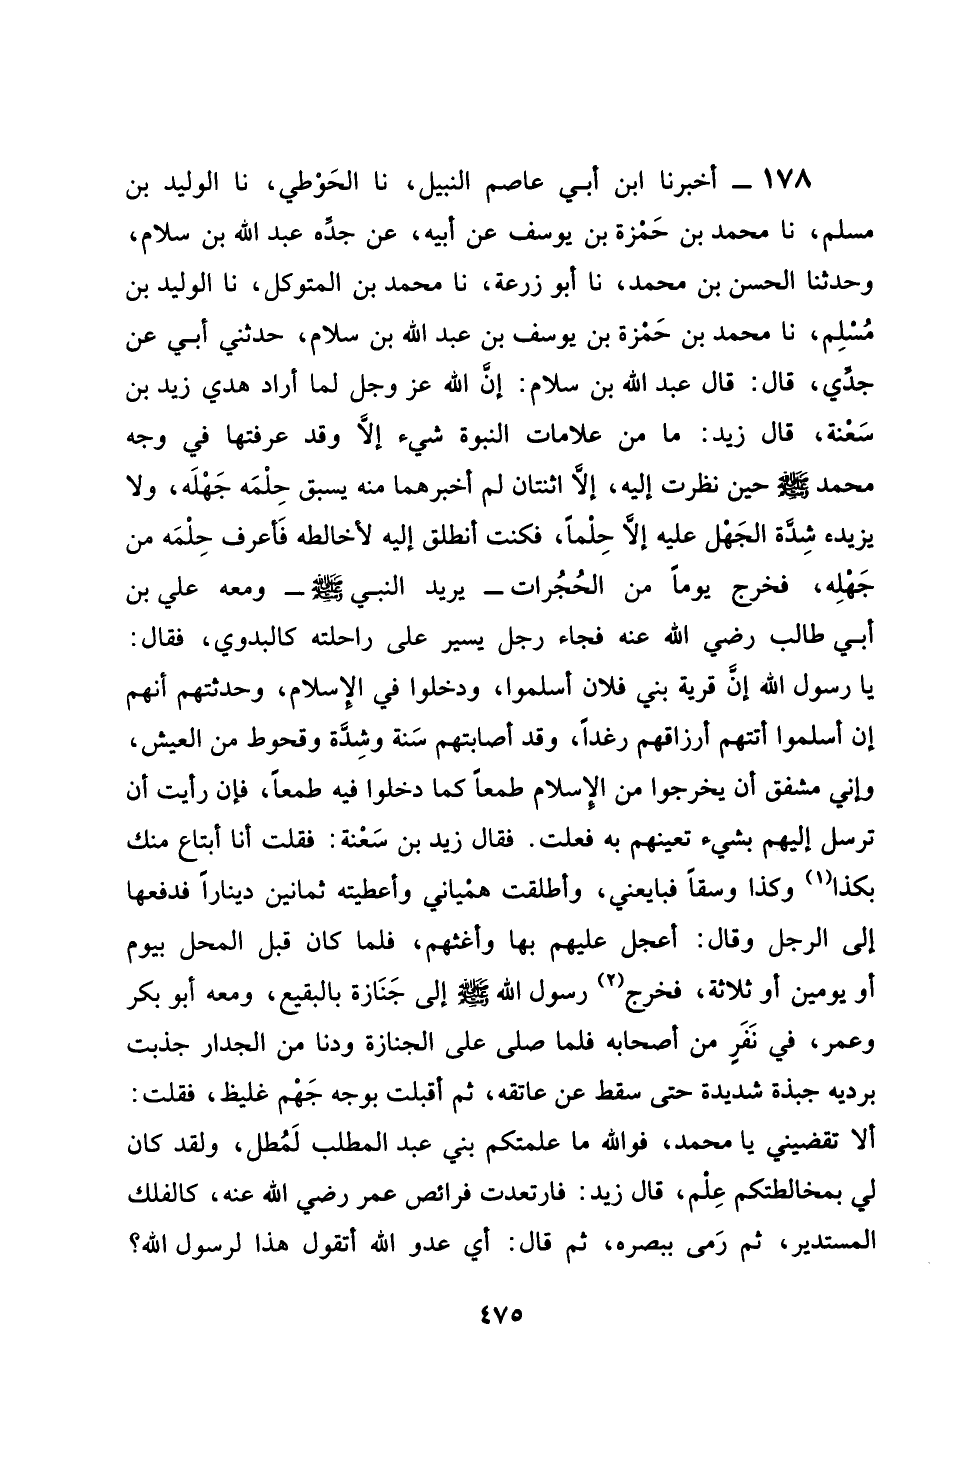 ١٧٨ ــ أخبرنا ابن أبـي عاصم النبيل، نا الحَوْطي، نا الوليد بن
مسلم، نا محمد بن حَمْزة بن يوسف عن أبيه، عن جدِّه عبد الله بن سلام،
وحدثنا الحسن بن محمد، نا أبو زرعة، نا محمد بن المتوكل، نا الوليد بن
مُسْلِم، نا محمد بن حَمْزة بن يوسف بن عبد الله بن سلام، حدثني أبـي عن
جدِّي، قال: قال عبد الله بن سلام: إنَّ الله عز وجل لما أراد هدي زيد بن
سَعْنة، قال زيد: ما من علامات النبوة شيء إلَّا وقد عرفتها في وجه
محمد ﷺ حين نظرت إليه، إلَّا اثنتان لم أخبرهما منه يسبق حِلْمَه جَهْلَه، ولا
يزيده شِدَّة الجَهْل عليه إلَّا حِلْماً، فكنت أنطلق إليه لأخالطه فَأعرف حِلْمَه من
جَهْلِه، فخرج يوماً من الحُجُرات ــ يريد النبـي ﷺ ــ ومعه علي بن
أبـي طالب رضي الله عنه فجاء رجل يسير على راحلته كالبدوي، فقال:
يا رسول الله إنَّ قرية بني فلان أسلموا، ودخلوا في الإِسلام، وحدثتهم أنهم
إن أسلموا أتتهم أرزاقهم رغداً، وقد أصابتهم سَنة وشِدَّة وقحوط من العيش،
وإني مشفق أن يخرجوا من الإِسلام طمعاً كما دخلوا فيه طمعاً، فإن رأيت أن
ترسل إليهم بشيء تعينهم به فعلت. فقال زيد بن سَعْنة: فقلت أنا أبتاع منك
بكذا(١) وكذا وسقاً فبايعني، وأطلقت همْياني وأعطيته ثمانين ديناراً فدفعها
إلى الرجل وقال: أعجل عليهم بها وأغثهم، فلما كان قبل المحل بيوم
أو يومين أو ثلاثة، فخرج(٢) رسول الله ﷺ إلى جَنَازة بالبقيع، ومعه أبو بكر
وعمر، في نَفَرٍ من أصحابه فلما صلى على الجنازة ودنا من الجدار جذبت
برديه جبذة شديدة حتى سقط عن عاتقه، ثم أقبلت بوجه جَهْم غليظ، فقلت:
ألا تقضيني يا محمد، فوالله ما علمتكم بني عبد المطلب لَمُطل، ولقد كان
لي بمخالطتكم عِلْم، قال زيد: فارتعدت فرائص عمر رضي الله عنه، كالفلك
المستدير، ثم رَمى ببصره، ثم قال: أي عدو الله أتقول هذا لرسول الله؟
٤٧٥